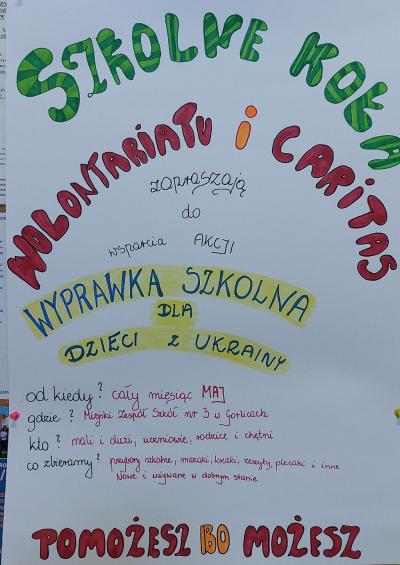 SZKOLNE KOŁA
WOLONTARIATU i CARITAS
zapraszają
do
wsparcia AKCJI
WYPRAWKA SZKOLNA
DLA
DZIECI z UKRAINY
od kiedy? cały miesiąc MAJ
gdzie? Miejski Zespół Szkół nr 3 w Gorlicach
kto? mali i duzi, uczniowie, rodzice i chętni
co zbieramy? przybory szkolne, mazaki, kredki, zeszyty, plecaki i inne
Nowe i używane w dobrym stanie
POMOŻESZ BO MOŻESZ